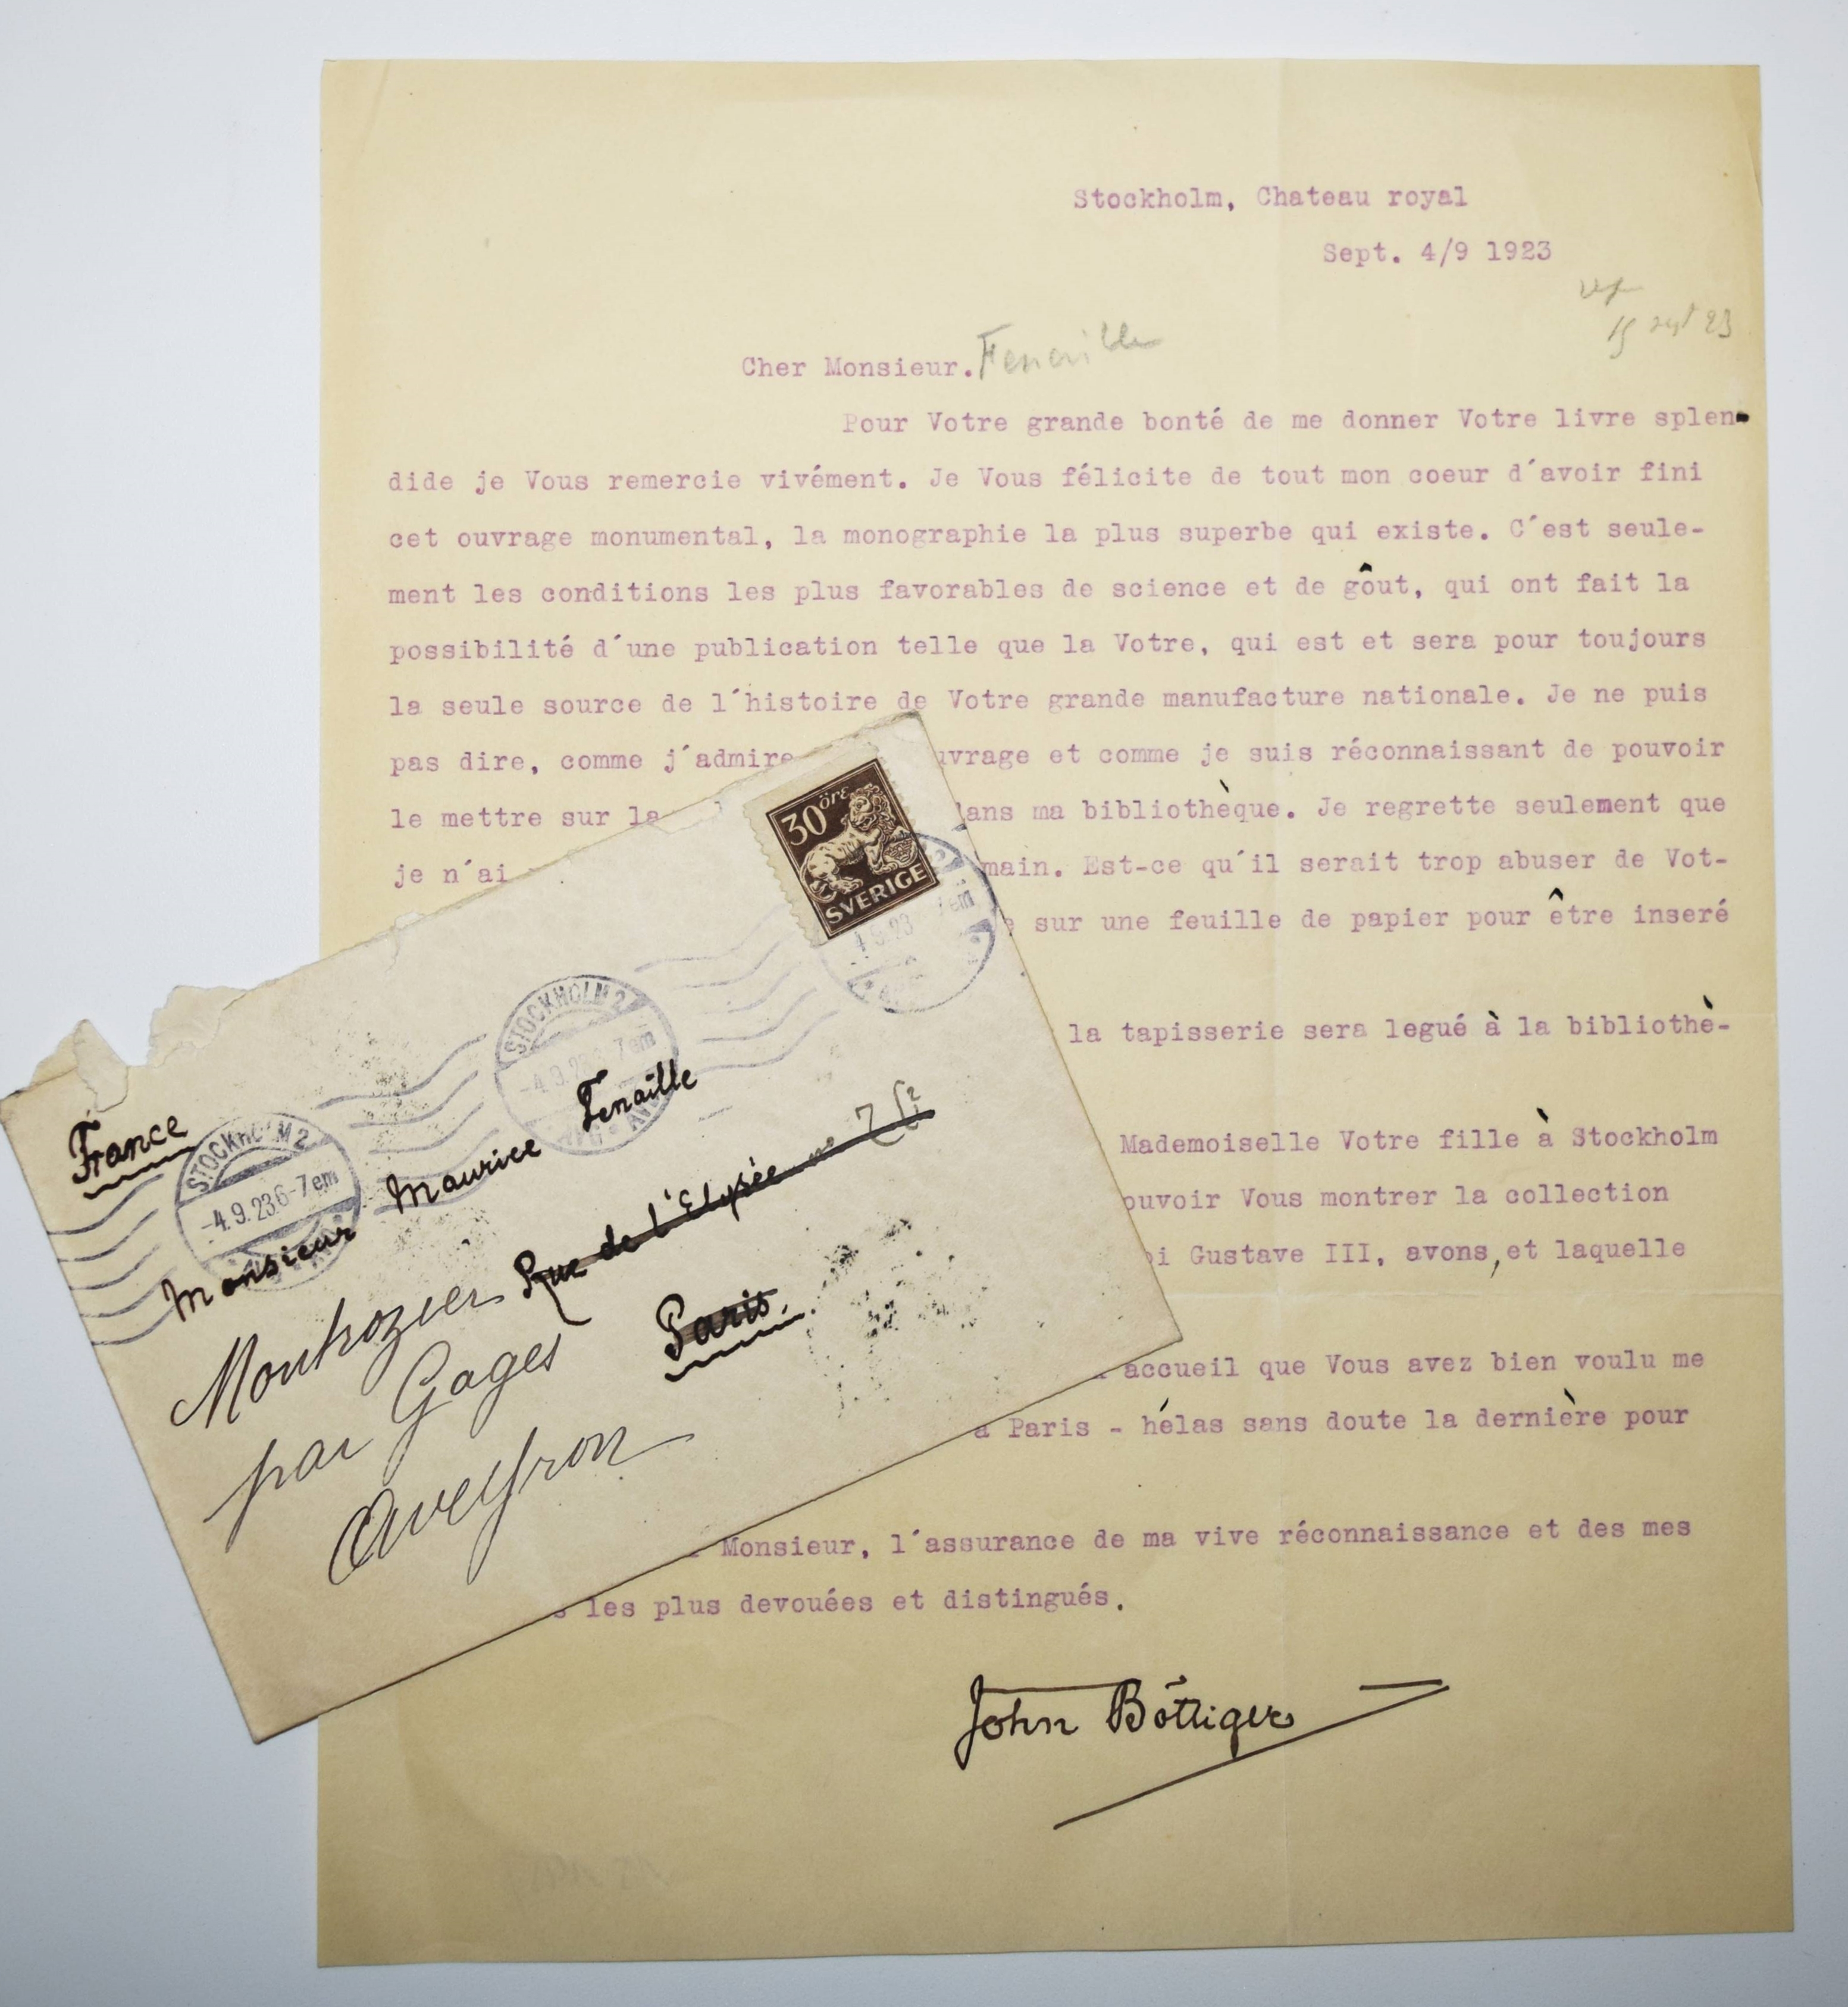 Stockholm, Chateau royal
Sept. 4/9 1923
15 sept 23
Cher Monsieur. Fenaille
Pour Votre grande bonté de me donner Votre livre splen-
dide je Vous remercie vivément. Je Vous félicite de tout mon coeur d´avoir fini
cet ouvrage monumental, la monographie la plus superbe qui existe. C´est seule-
ment les conditions les plus favorables de science et de goût, qui ont fait la
possibilité d´une publication telle que la Votre, qui est et sera pour toujours
la seule source de l´histoire de Votre grande manufacture nationale. Je ne puis
pas dire, comme j´admire uvrage et comme je suis réconnaissant de pouvoir
le mettre sur la ans ma bibliothèque. Je regrette seulement que
je n´ai main. Est-ce qu´il serait trop abuser de Vot-
sur une feuille de papier pour être inseré
la tapisserie sera legué à la bibliothè-
Mademoiselle Votre fille à Stockholm
ouvoir Vous montrer la collection
oi Gustave III, avons, et laquelle
accueil que Vous avez bien voulu me
a Paris - hélas sans doute la dernière pour
Monsieur, l´assurance de ma vive réconnaissance et des mes
s les plus devouées et distingués.
John Böttiger
30 öre
SVERIGE
STOCKHOLM 2
-4.9.23.6-7em
STOCKHOLM 2
-4.9.23.6-7em
France
Monsieur Maurice Fenaille
Rue de l'Elysée
Paris.
Montrozier
par Gages
Aveyron